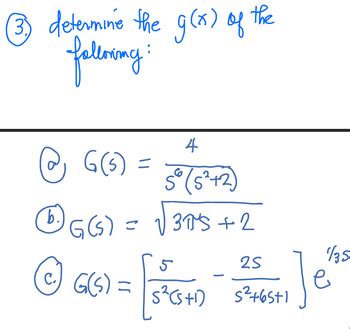 ③ determine the g(x) of the
following:
ⓐ G(s) = 4 / s⁶(s²+2)
ⓑ G(s) = √(3πs + 2)
ⓒ G(s) = [5 / s²(s+1) - 2s / s²+6s+1] e^(1/3s)